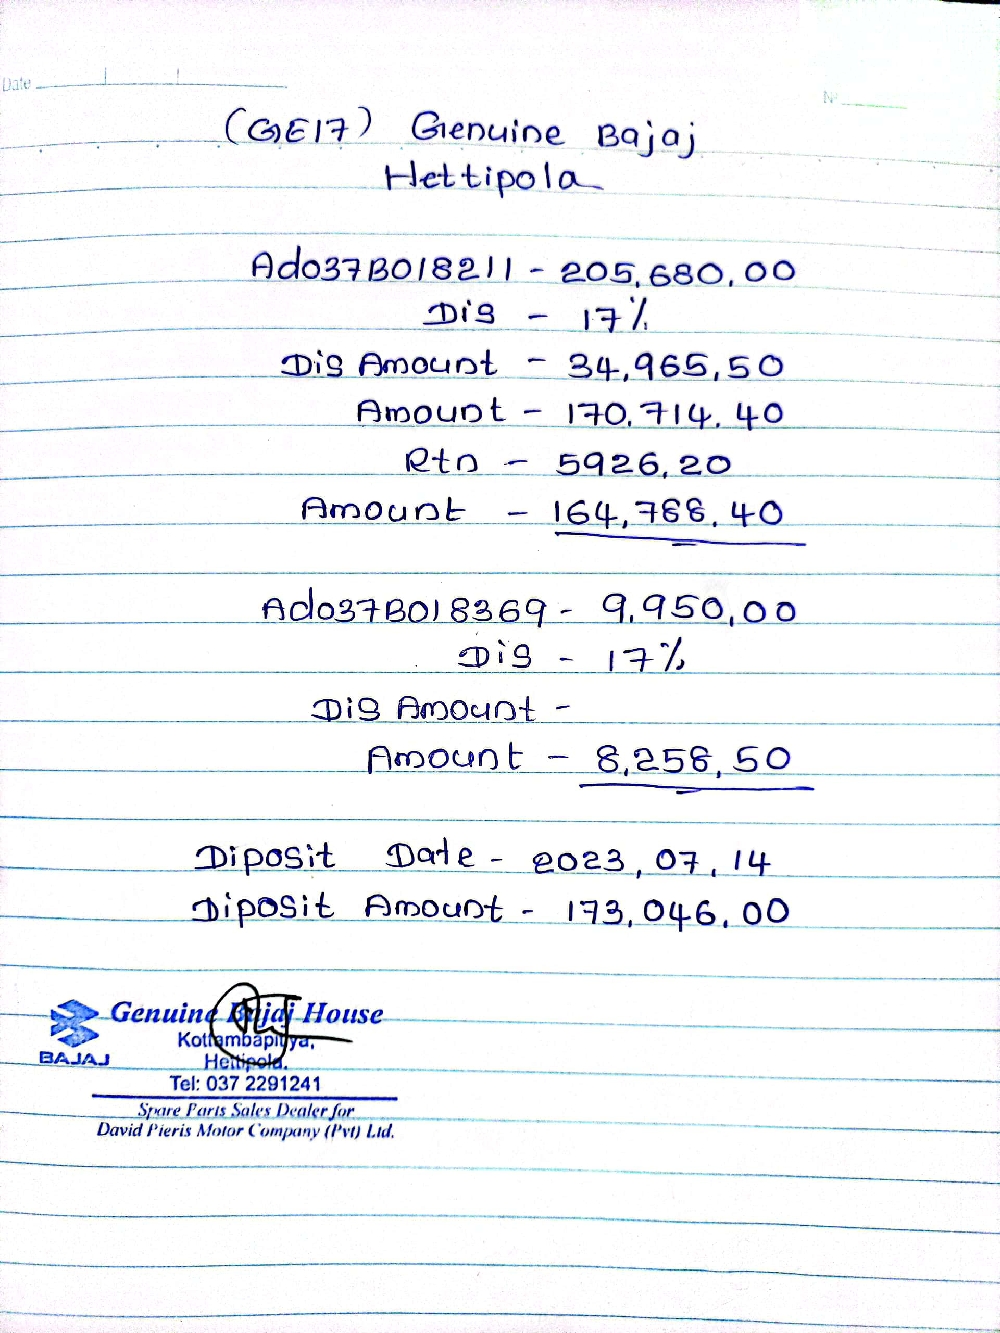 Date
No
(GE17) Genuine Bajaj
Hettipola
Ado37B018211 - 205,680.00
Dis - 17%
Dis Amount - 34,965,50
Amount - 170,714.40
Rtn - 5926,20
Amount - 164,788.40
Ado37B018369 - 9,950,00
Dis - 17%
Dis Amount -
Amount - 8,258,50
Diposit Date - 2023,07,14
Diposit Amount - 173,046.00
Genuine Bajaj House
Kottambapitiya,
BAJAJ Hettipola.
Tel: 037 2291241
Spare Parts Sales Dealer for
David Pieris Motor Company (Pvt) Ltd.